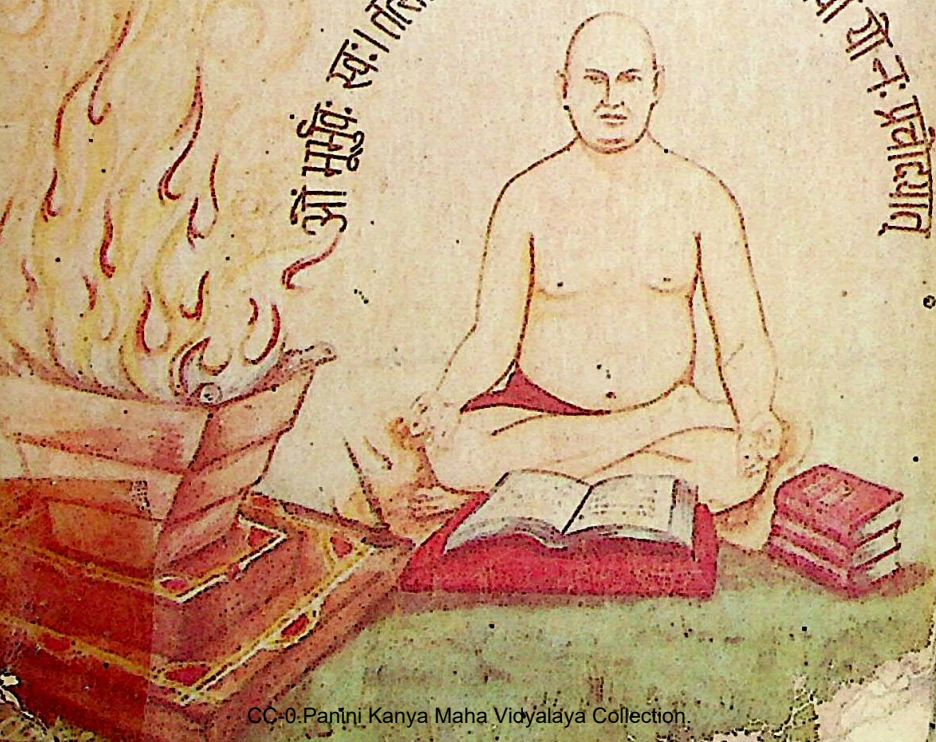 ओं भूर्भुवः स्वः।
यो नः प्रचोदयात्
CC-0.Panini Kanya Maha Vidyalaya Collection.